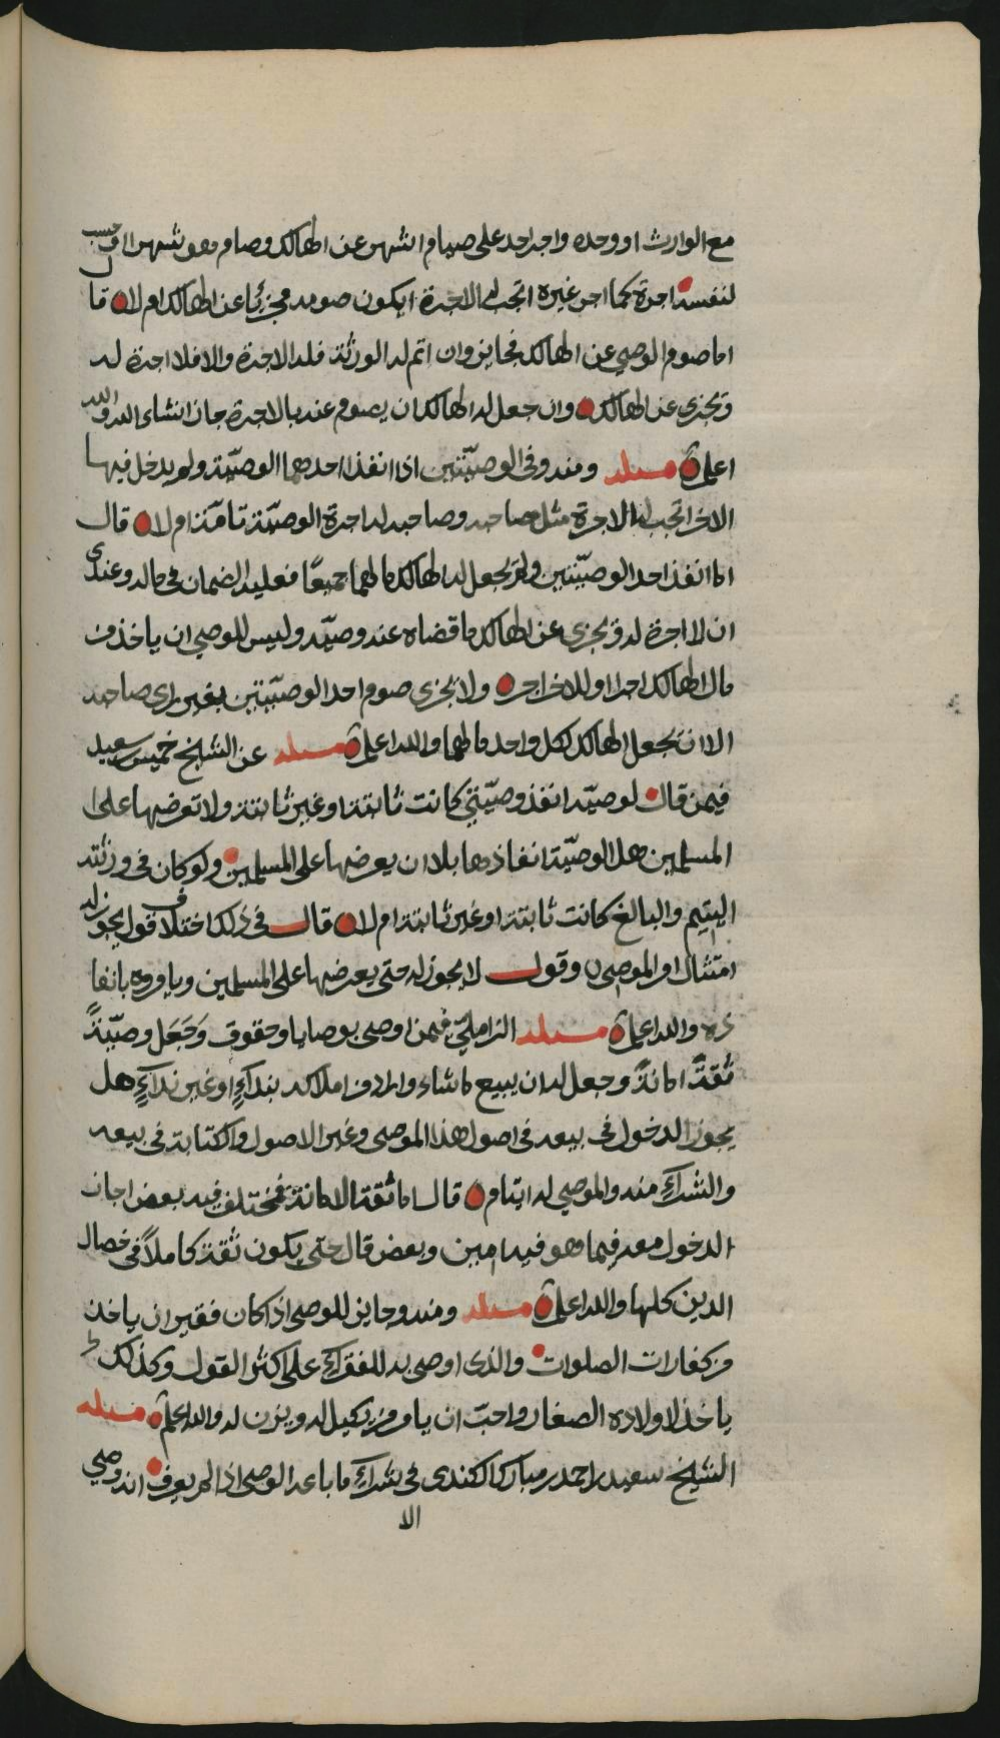 مع الوارث او وحده واجر احد على صيام اشهر عن الهالك وصام هو شهرا او حسب
لنفسه اجرة كما اجر غيره اتجب له الاجرة ايكون صومه مجزئا عن الهالك ام لا قال
اما صوم الوصي عن الهالك فجايز وان اتم له الورثة فله الاجرة والا فلا اجرة له
ويجزي عن الهالك وان جعل له الهالك ان يصوم عنه بالاجرة جاز انشاء الله والله
اعلم مسئلة ومنه وفي الوصيّين اذا انفذ احدهما الوصيّة ولم يدخل فيها
الاخر اتجب له الاجرة مثل صاحبه وصاحبه له اجرة الوصيّة تامّة ام لا قال
اذا انفذ احد الوصيّين ولم يجعل له الهالك ما لهما جميعًا فعليه الضمان في ماله وعندي
ان لا اجرة له ويجزي عن الهالك ما قضاه عنه وصيّه وليس للوصي ان ياخذ من
مال الهالك اجرا او للاخر اجره ولا يجزي صوم احد الوصيّين بغير راي صاحبه
الا ان يجعل الهالك لكل واحد ما لهما والله اعلم مسئلة عن الشيخ خميس بن سعيد
فيمن قال لوصيّه انفذ وصيّتي كانت ثابتة او غير ثابتة ولا تعرضها على
المسلمين هل الوصيّة انفاذها بلا ان يعرضها على المسلمين ولو كان في ورثته
اليتيم والبالغ كانت ثابتة او غير ثابتة ام لا قال في ذلك اختلاف قول يجوز له
امتثال امر الموصي وقول لا يجوز له حتى يعرضها على المسلمين ويامروه بانفا
ذه والله اعلم مسئلة الزاملي فيمن اوصى بوصايا وحقوق وَجَعَل وصيّةً
ثقةً امانةً وجعل له ان يبيع ما شاء واراد من املاكه بنداءٍ او غير نداءٍ هل
يجوز الدخول في بيعه في اصول هذا الموصي وغير الاصول والكتابة في بيعه
والشراء منه والموصي له ايتام قال اما ثقة الامانة فمختلف فيه بعض اجاز
الدخول معه فيما هو فيه امين وبعض قال حتى يكون ثقة كاملاً في خصال
الدين كلها والله اعلم مسئلة ومنه وجايز للوصي اذا كان فقير ان ياخذ
من كفارات الصلوات والذي اوصي به للفقراء على اكثر القول وكذلك
ياخذ لاولاده الصغار واحبّ ان يامر من يكيل له ويزن له والله اعلم مسئله
الشيخ سعيد بن احمد بن مبارك الكندي في شراء ما باعه الوصي اذا لم يعرف انه وصي
الا